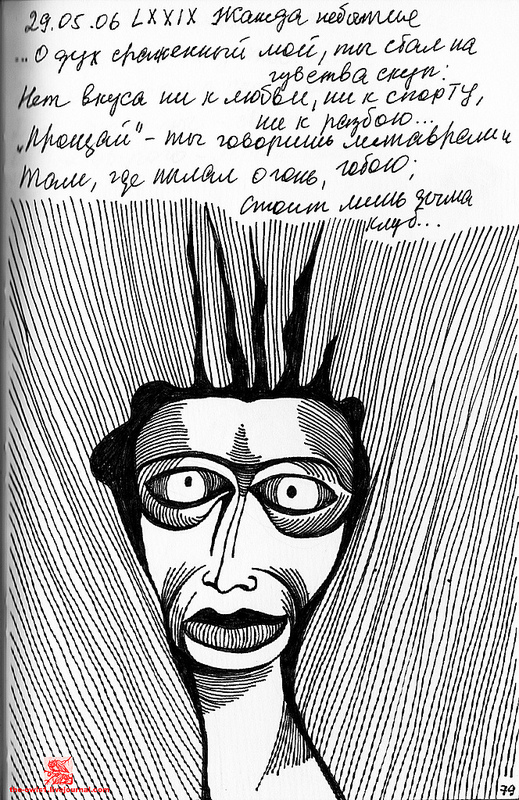 29.05.06 LXXIX Жажда небытия
... О дух сраженный мой, ты стал на
чувства скуп:
Нет вкуса ни к любви, ни к спорту,
ни к разбою...
„Прощай" - ты говоришь литаврам и
Там, где пылал огонь,
стоит лишь дыма
клуб...
79